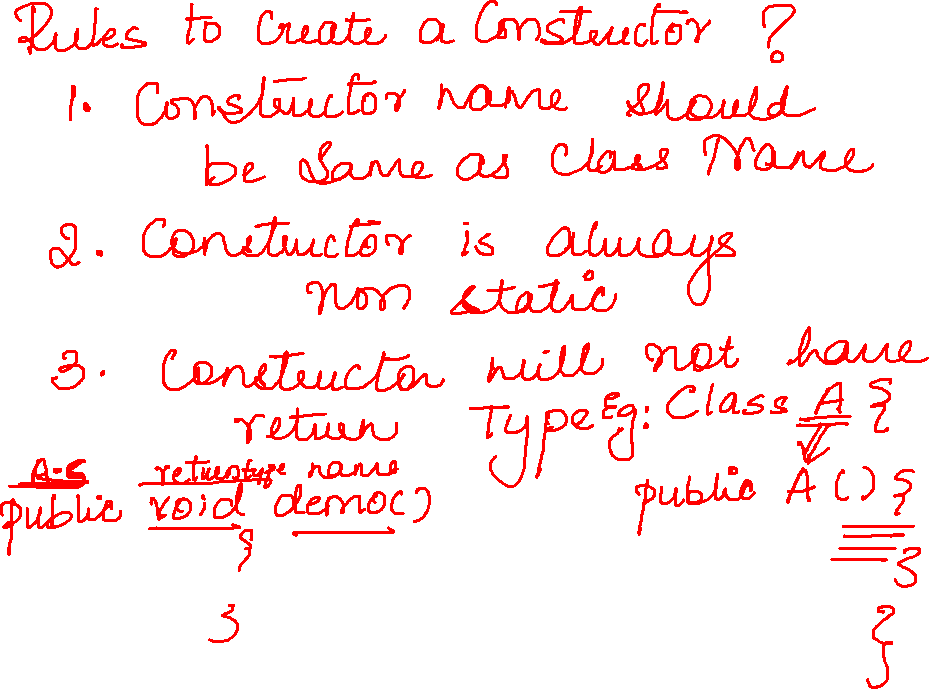 Rules to Create a Constructor ?
1. Constructor name should
be Same as Class Name
2. Constructor is always
non static
3. Constructor will not have
return Type Eg: Class A {
A.S returntype name
public void demo()
{
}
public A () {
}
}